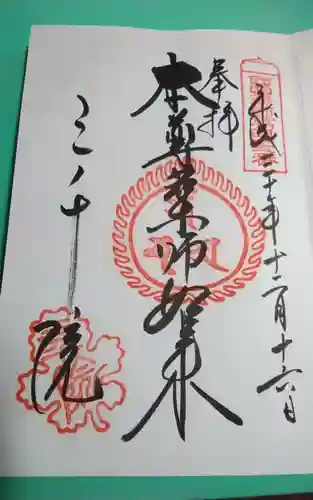 奉拝
平成三十年十二月十六日
本尊薬師如来
三千院